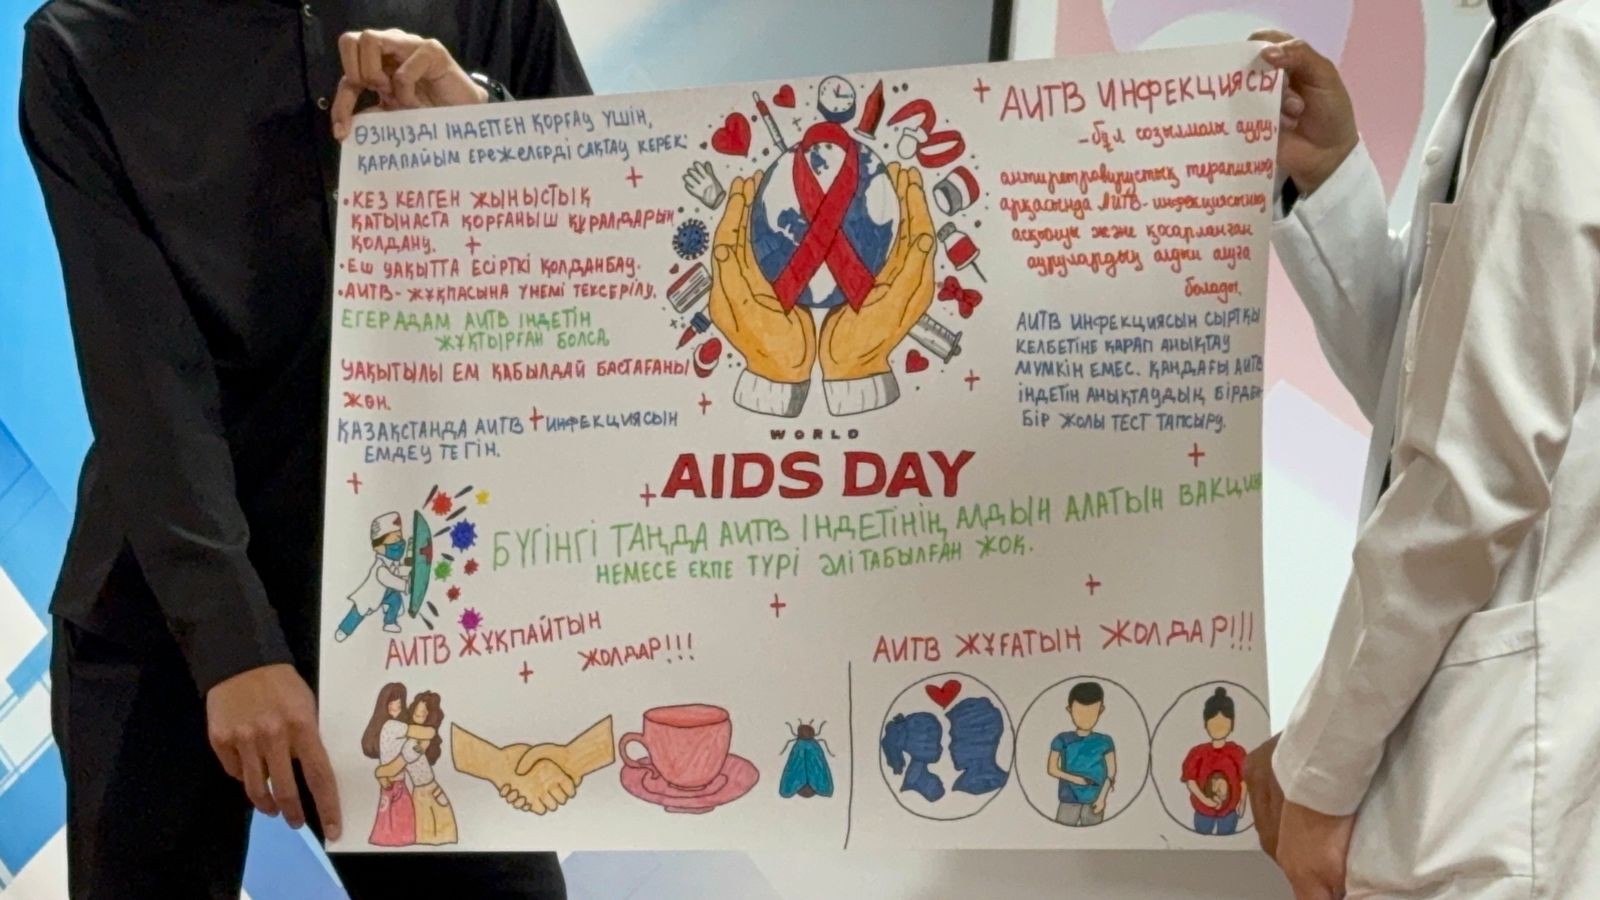 Өзіңізді індеттен қорғау үшін,
қарапайым ережелерді сақтау керек:
• Кез келген жыныстық
қатынаста қорғаныш құралдарын
қолдану.
• Еш уақытта есірткі қолданбау.
• АИТВ-жұқпасына үнемі тексерілу.
Егер адам АИТВ індетін
жұқтырған болса,
уақытылы ем қабылдай бастағаны
жөн.
Қазақстанда АИТВ инфекциясын
емдеу тегін.
WORLD
AIDS DAY
АИТВ ИНФЕКЦИЯСЫ
- бұл созылмалы ауру,
антиретровирустық терапияның
арқасында АИТВ-инфекциясының
асқынуы және қосарланған
аурулардың алдын алуға
болады.
АИТВ инфекциясын сыртқы
келбетіне қарап анықтау
мүмкін емес. Қандағы АИТВ
індетін анықтаудың бірден
бір жолы тест тапсыру.
Бүгінгі таңда АИТВ індетінің алдын алатын вакцин
немесе екпе түрі әлі табылған жоқ.
АИТВ ЖҰҚПАЙТЫН
ЖОЛДАР!!!
АИТВ ЖҰҒАТЫН ЖОЛДАР!!!